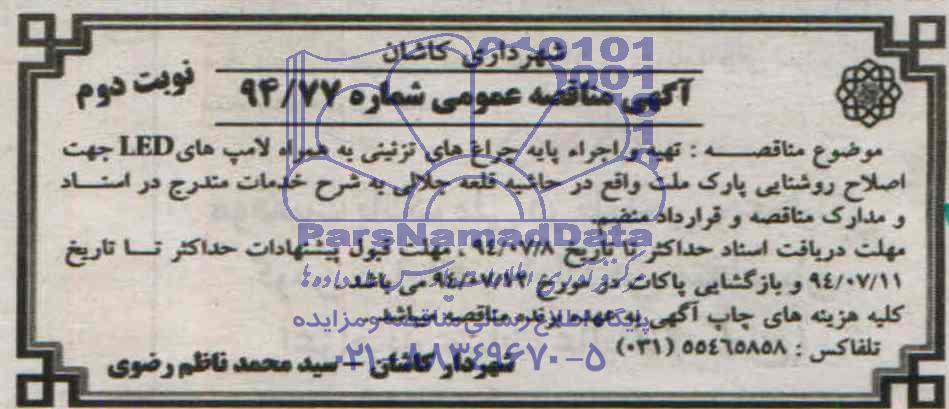 شهرداری کاشان
آگهی مناقصه عمومی شماره ۹۴/۷۷
نوبت دوم
موضوع مناقصه : تهیه و اجراء پایه چراغ های تزئینی به همراه لامپ های LED جهت
اصلاح روشنایی پارک ملت واقع در حاشیه قلعه جلالی به شرح خدمات مندرج در اسناد
و مدارک مناقصه و قرارداد منضم.
مهلت دریافت اسناد حداکثر تا تاریخ ۹٤/۰۷/۸ ، مهلت قبول پیشنهادات حداکثر تا تاریخ
۹٤/۰۷/۱۱ و بازگشایی پاکات در مورخ می باشد.
کلیه هزینه های چاپ آگهی به عهده برنده مناقصه میباشد.
تلفاکس : ۵۵٤٦۵۸۵۸ (۰۳۱)
شهردار کاشان – سید محمد ناظم رضوی
ParsNamadData
پایگاه اطلاع رسانی مناقصه و مزایده
۰۲۱-۸۸۳۴۹۶۷۰-۵